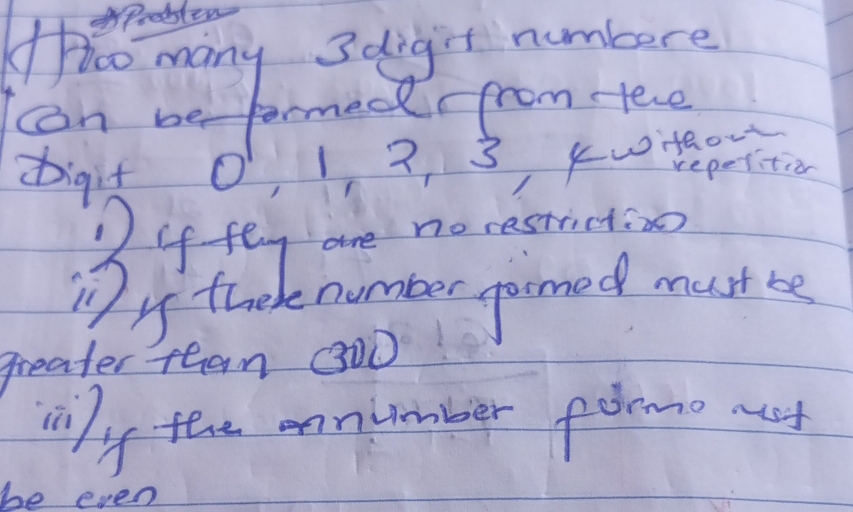 Problem
How many 3 digit numbere
Can be formed from the
Digit 0, 1, 2, 3, 4 without repetition
i) if they are no restriction
ii) if these number formed must be
greater than 300
iii) if the number formo must
be even